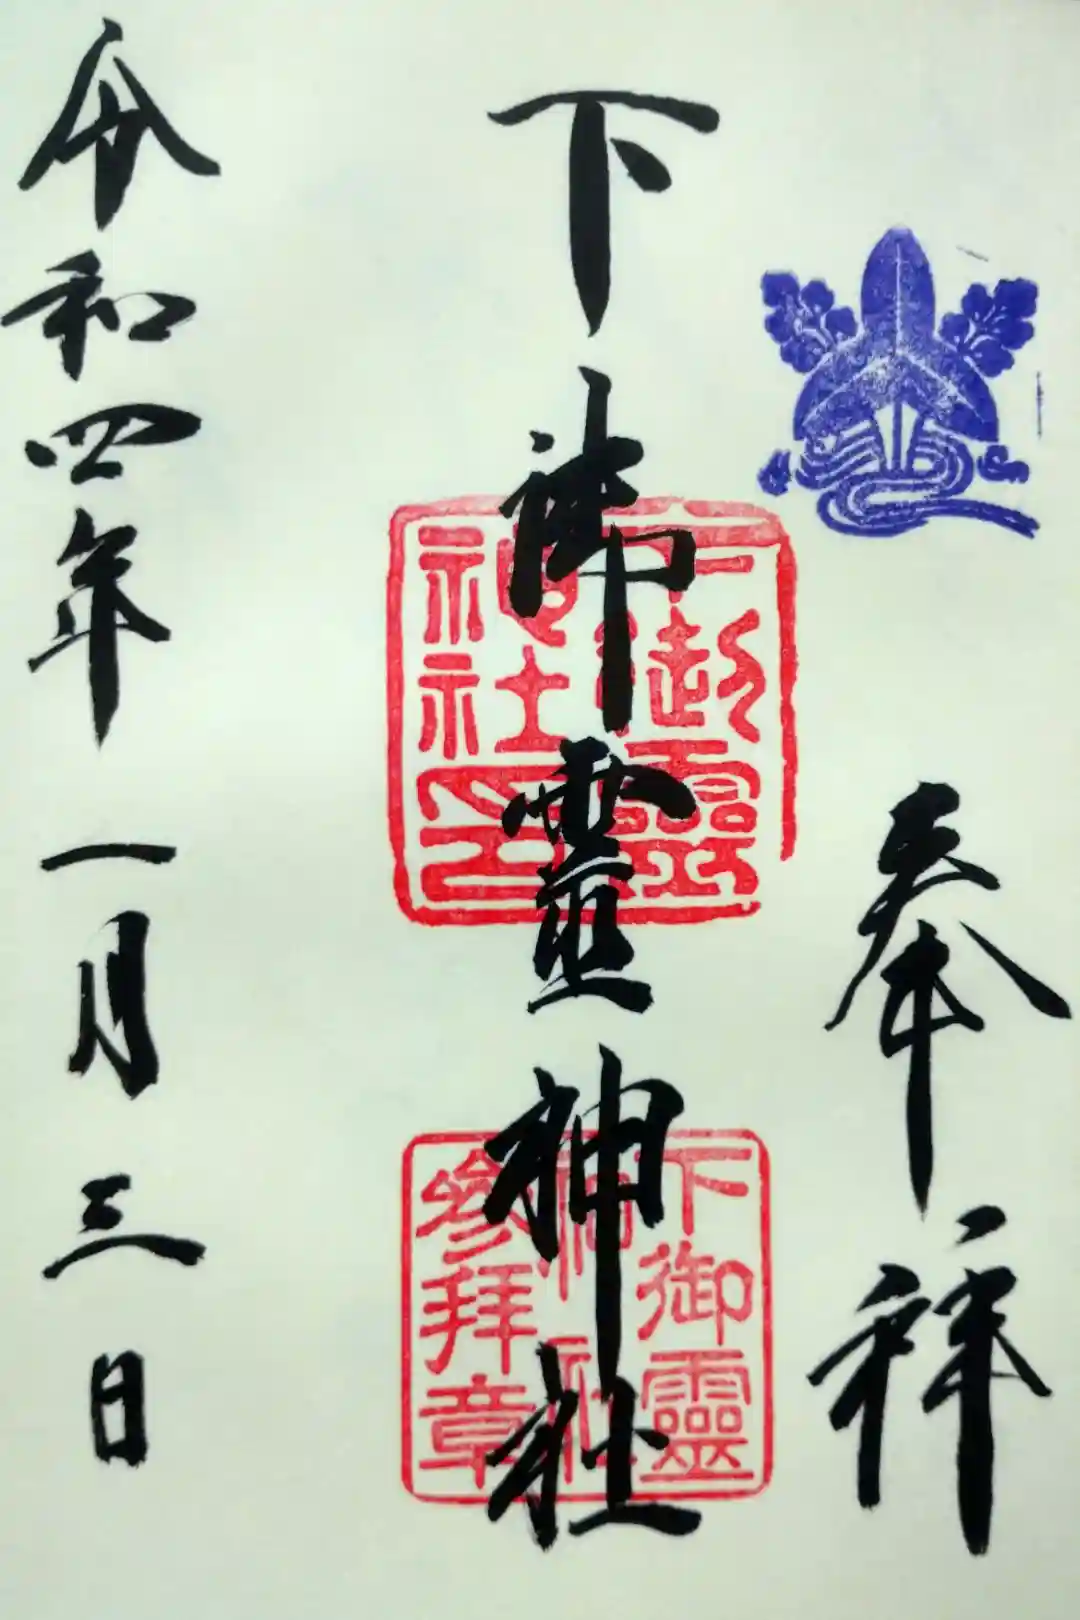 奉拝
下御靈神社
下御靈神社印
下御靈神社参拜章
令和四年一月三日